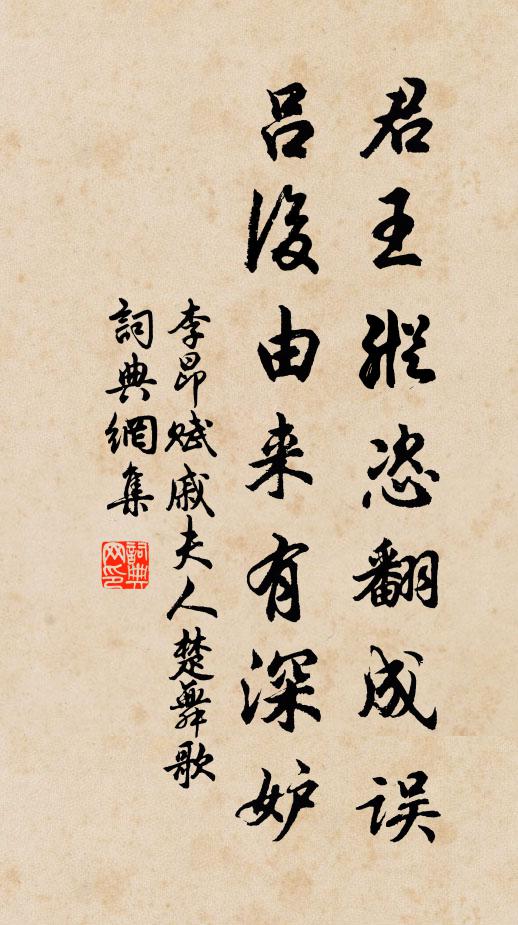 君王縱恣翻成误
吕後由来有深妒
李昂赋戚夫人楚舞歌
詞典網集
詞典网印